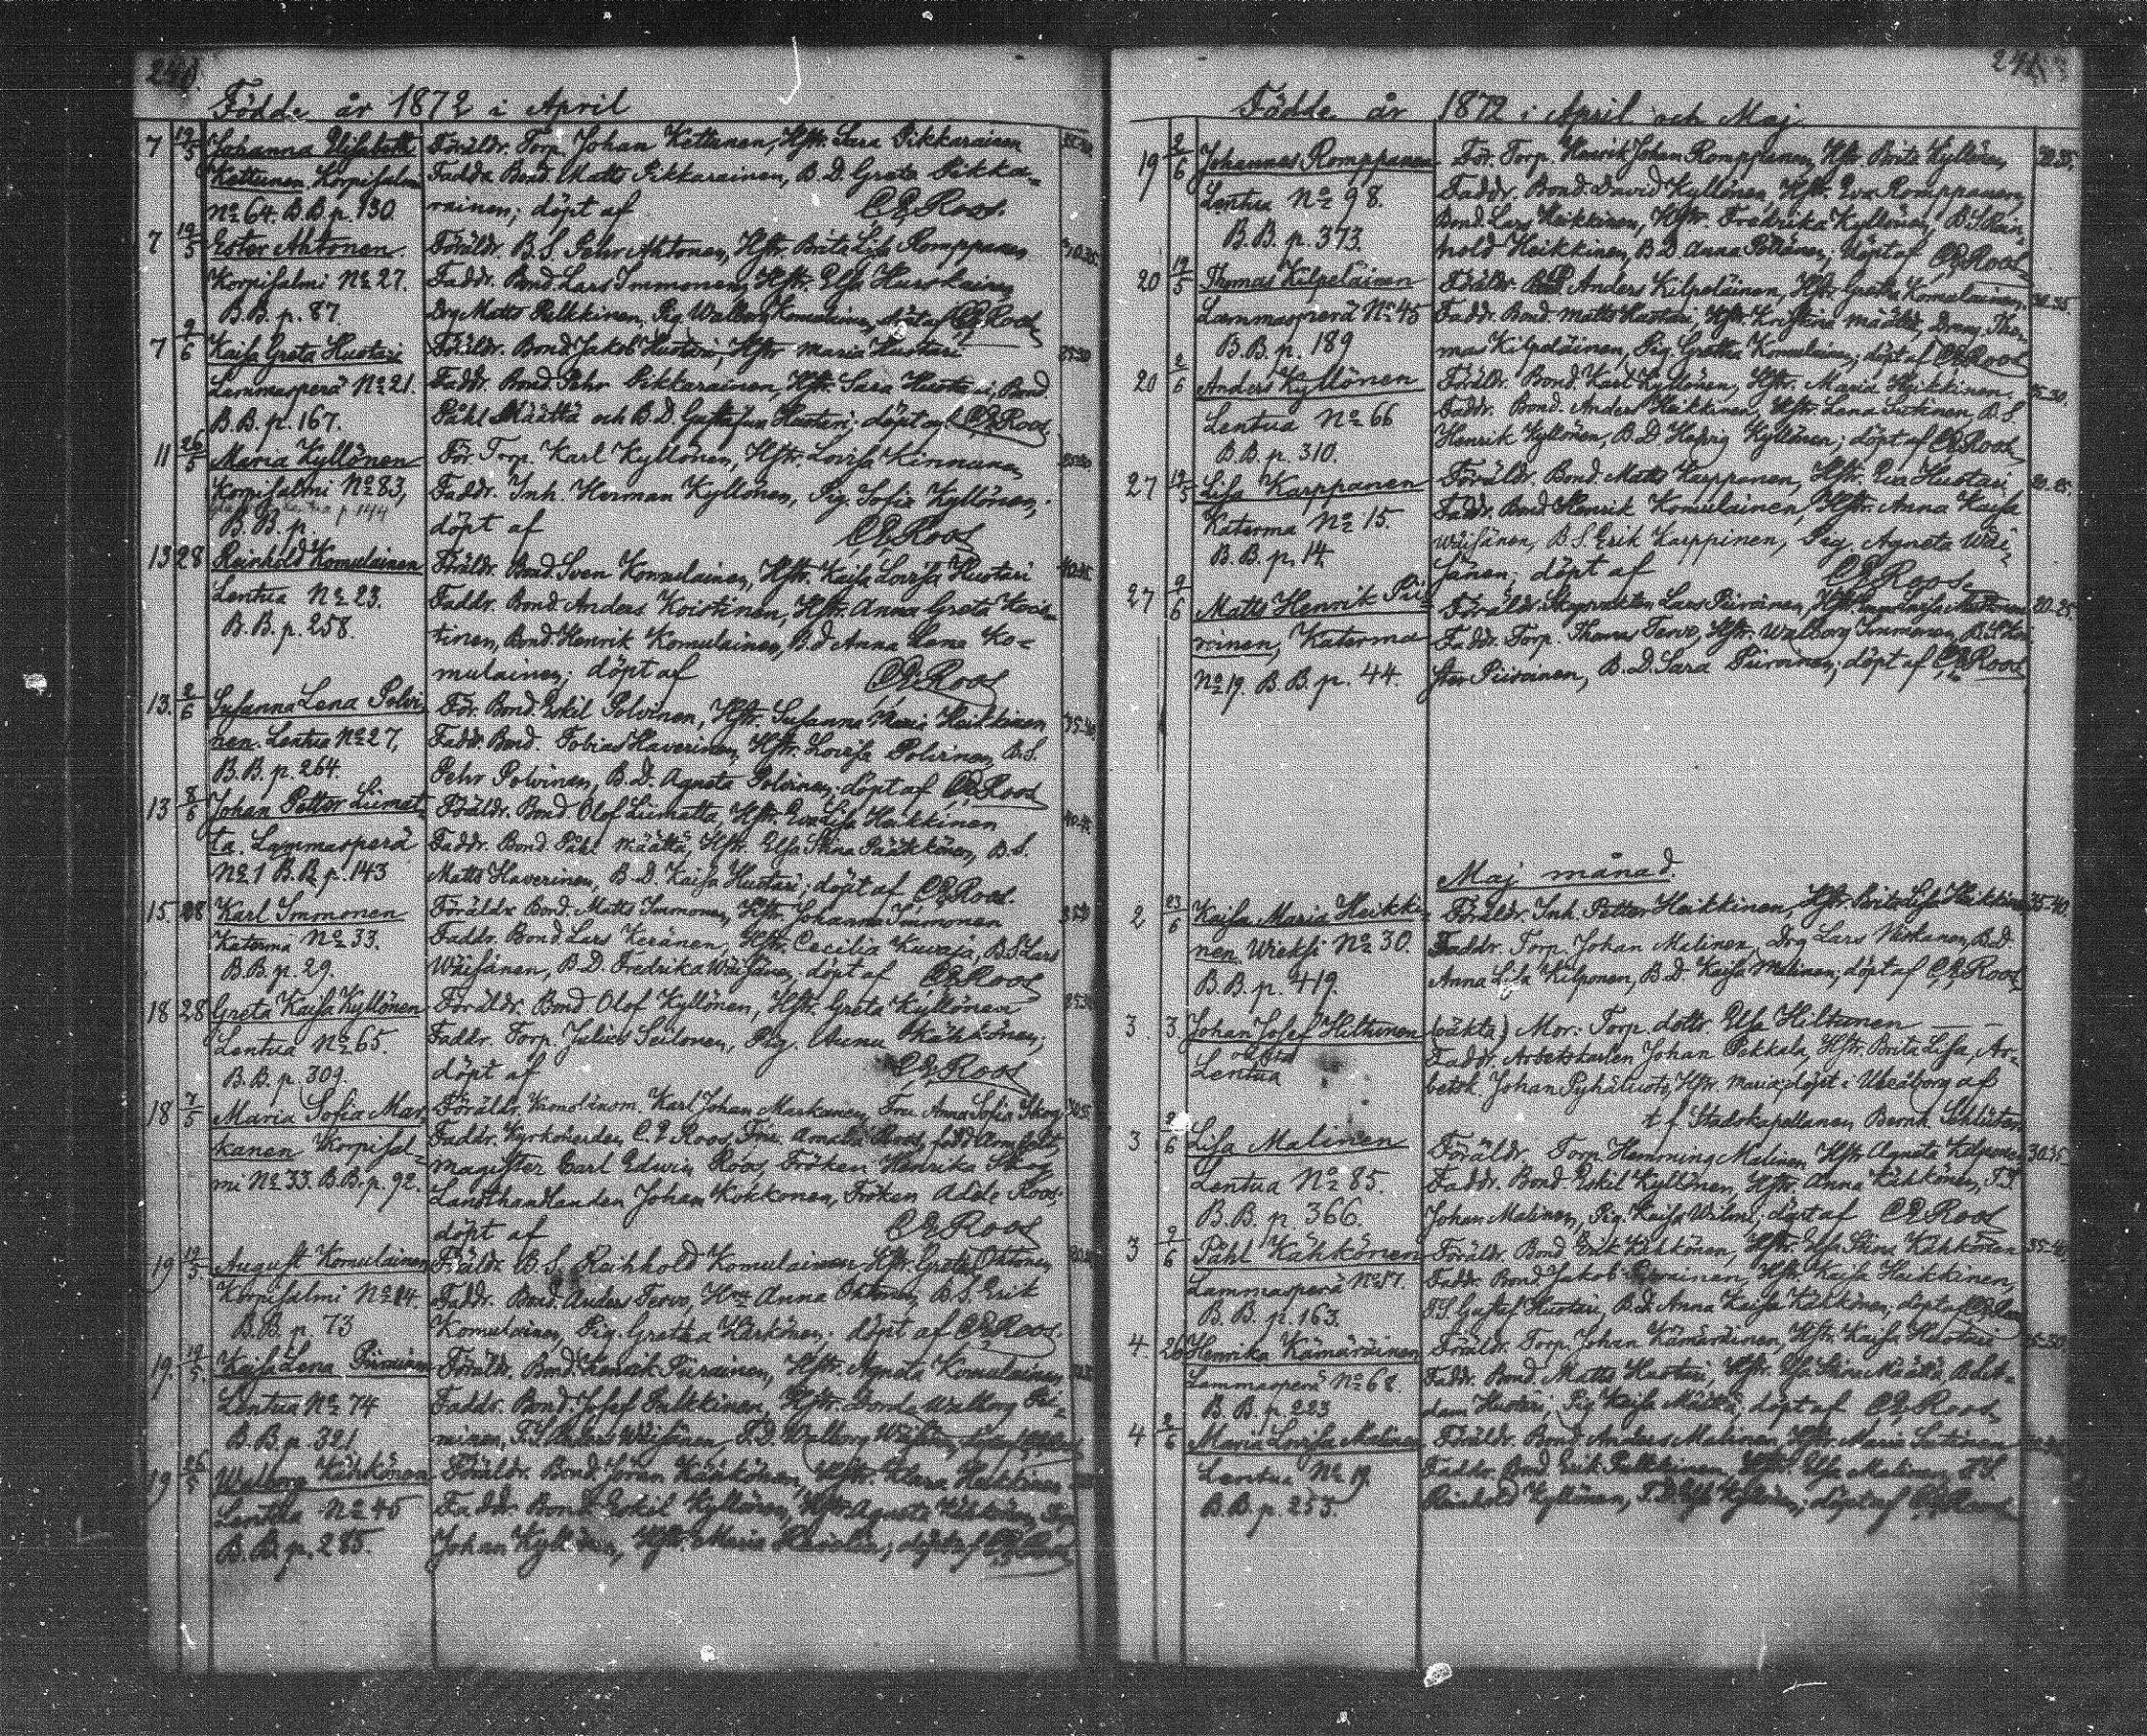 240.
Födde år 1872 i April
7 19/5 Johanna Elisabeth Föräldr. Torp. Johan Kettunen, Hstr. Sara Pikkarainen
Kettunen, Korpisalmi Fadda Bond. Matts Pikkarainen, B. D. Greta Pikka-
No 64. B.B.p. 130. rainen; döpt af C E Roos.
7 19/5 Ester Ahtonen. Föräldr. B. S. Pehr Ahtonen, Hstr. Brita Lisa Romppanen 30.35.
Korpisalmi No 27. Faddr. Bond. Lars Immonen, Hstr. Elsa Hurskainen
B.B. p. 87. Drg Matts Pulkkinen, Pig Walborg Komulainen, döpt af C E Roos
7 9/6 Kaisa Greta Huotari Föräldr. Bond Jakob Huotari, Hstr Maria Huotari 25.30
Lammasperä No 21. Faddr. Bond. Pehr Pikkarainen, Hstr. Sara Huotari, Bond.
B.B. p. 167. Påhl Määttä och B. D. Gustafva Huotari; döpt af C E Roos
11 26/5 Maria Kyllönen För. Torp. Karl Kyllönen, Hstr. Lovisa Kinnunen
Korpisalmi No 83, Faddr. Inh. Herman Kyllönen, Pig. Sofia Kyllönen,
p 144
B. B. p. döpt af C E Roos
13 28 Reinhold Komulainen Föräldr. Bond. Sven Komulainen, Hstr. Kaisa Lovisa Huotari 40.45
Lentua No 23. Faddr. Bond. Anders Koistinen, Hstr. Anna Greta Kois-
B. B. p. 258. tinen, Bond. Henrik Komulainen, B.d Anna Lena Ko-
mulainen; döpt af C E Roos
13. 2/6 Susanna Lena Polvi- För. Bond. Eskil Polvinen, Hstr. Susanna Maria Heikkinen 35-40
nen. Lentua No 27, Faddr. Bond. Tobias Haverinen, Hstr. Lovisa Polvinen, B.S.
B. B. p. 264. Pehr Polvinen, B. D. Agneta Polvinen; döpt af C E Roos
13 8/6 Johan Petter Liimat- Föräldr. Bond. Olof Liimatta, Hstr. Eva Lisa Heikkinen 40-45
ta. Lammasperä Faddr. Bond Påhl Määttä, Hstr. Elsa Stina Pääkkönen, B. S.
No 1 B. B. p. 143 Matts Haverinen, B. D. Kaisa Huotari; döpt af C E Roos.
15. 28 Karl Immonen Föräldr. Bond. Matts Immonen, Hstr. Johanna Immonen
Katerma No 33. Faddr. Bond. Lars Keränen, Hstr. Cecilia Kuvaja, B. S. Lars
B. B. p. 29. Wäisänen, B. D. Fredrika Wäisänen, döpt af C E Roos
18 28 Greta Kaisa Kyllönen Föräldr. Bond Olof Kyllönen, Hstr. Greta Kyllönen 25.30
Lentua No 65. Faddr. Torp. Julius Seilonen, Pig. Anna Kähkönen;
B. B. p. 309. döpt af C E Roos
18 7/5 Maria Sofia Mar- Föräldr. Kronolänsm. Karl Johan Markanen, Fru Anna Sofia Skog
kanen Korpisal- Faddr. Kyrkoherden C. E Roos, Fru Amalia Roos född Armfelt,
mi No 33. B. B. p. 92. magister Carl Edwin Roos, Fröken Henrika Skog
Landthandlanden Johan Kokkonen, Fröken Adele Roos.
döpt af C E Roos
19 19/5. August Komulainen Föräldr. B. S. Reinhold Komulainen Hstr. Greta Ohtonen
Korpisalmi No 14. Faddr. Bond. Anders Tervo, Hstr Anna Ohtonen, B. S. Erik
B. B. p. 73 Komulainen, Pig. Gretha Härkönen; döpt af C E Roos.
19. 19/5. Kaisa Lena Piirainen Föräldr. Bond. Henrik Piirainen, Hstr. Agneta Komulainen
Lentua No 74 Faddr. Bond. Josef Pulkkinen, Hstr. Dorde Walborg Pii-
B. B. p. 321 rainen, T. S. Anders Wäisänen, T. D. Walborg
19 26/5 Walborg Kähkönen Föräldr. Bond. Göran Kähkönen, Hstr. Klara Heikkinen
Lentua No 45 Faddr. Bond. Eskil Kyllönen, Hstr. Agneta Kähkönen,
B. B. p. 285. Johan Kyllönen, Hstr. Maria; döpt af C E Roos
Födde år 1872 i April och Maj
19 2/6 Johannes Romppanen För. Torp. Henrik Johan Romppanen, Hstr. Brita Kyllönen, 30.35.
Lentua No 98. Faddr. Bond. David Kyllönen, Hstr. Eva Romppanen,
B. B. p. 373. Bond. Lars Heikkinen, Hstr. Fredrika Kyllönen, B. S. Rein-
hold Heikkinen, B. D. Anna; döpt af C E Roos
20 19/5 Thomas Kilpeläinen Föräldr. Anders Kilpeläinen, Hstr. Gretha Komulainen, 30.35
Lammasperä No 45 Faddr. Bond. Matts Huotari, Hstr. Kristina Määttä, Dreng Tho-
B. B. p. 189 mas Kilpeläinen, Pig. Gretha Komulainen; döpt af C E Roos
20 2/6 Anders Kyllönen Föräldr. Bond. Karl Kyllönen, Hstr. Maria Heikkinen. 25-30.
Lentua No 66 Faddr. Bond. Anders Heikkinen, Hstr. Lena Sutinen, B. S.
B. B. p. 310. Henrik Kyllönen, B. D Hedvig Kyllönen; döpt af C E Roos
27 19/5 Lisa Karppanen Föräldr. Bond. Matts Karppanen, Hstr. Eva Huotari 20.25.
Katerma No 15. Faddr. Bond Henrik Komulainen, Hstr. Anna Kaisa
B. B. p. 14 Wäisänen, B. S. Erik Karppinen, Pig. Agneta Wäi-
sänen; döpt af C E Roos.
27 9/6 Matts Henrik Pii- Föräldr. Skogvaktn. Lars Piirainen, Hstr. 20-25.
rainen, Katerma Faddr. Torp. Thomas Tervo, Hstr. Walborg Immonen, B. S.
No 19. B. B. p. 44. Piirainen, B. D. Sara Piirainen; döpt af C E Roos
Maj månad.
2 23/6 Kaisa Maria Heikki- Föräldr. Inh. Petter Heikkinen, Hstr. Brita Lisa Heikkinen 35-40.
nen. Wieksi No 30. Faddr. Torp. Johan Malinen, Drg Lars Niskanen, B. D.
B. B. p. 419. Anna Lisa Kilponen, B. D. Kaisa Malinen; döpt af C E Roos
3 3. Johan Josef Hiltunen (oäkta) Mor: Torp. dottr Elsa Hiltunen — —
Lentua Faddr. Arbetskarlen Johan Pekkala, Hstr. Brita Lisa, Ar-
betsk. Johan Pyhäluoto, Hstr. Maria; döpt i Uleåborg af
t. f. Stadskapellanen Bernh. Schlüter
3 2/6 Lisa Malinen Föräldr. Torp. Hemming Malinen Hstr. Agneta Kilponen 30.35
Lentua No 85. Faddr. Bond. Eskil Kyllönen, Hstr. Anna Kähkönen, T. S.
B. B. p. 366. Johan Malinen, Pig. Kaisa; döpt af C E Roos
3 9/6 Påhl Kähkönen Föräldr. Bond. Erik Kähkönen, Hstr. Elsa Stina Kähkönen 35-40
Lammasperä No 17. Faddr. Bond. Jakob, Hstr. Kaisa Heikkinen,
B. B. p. 163. T. S. Gustaf Huotari, B. D. Anna Kaisa Kähkönen; döpt af C E Roos
4. 26 Henrika Kämäräinen Föräldr. Torp. Johan Kämäräinen, Hstr. Kaisa Huotari
Lammasperä No 68. Faddr. Bond. Matts Huotari, Hstr. Elsa Stina Määttä,
B. B. p. 223 Huotari, Pig Kaisa Määttä, döpt af C E Roos
4 2/6 Maria Lovisa Malinen Föräldr. Bond Anders Malinen, Hstr. Maria Sutinen
Lentua No 19. Faddr. Bond Erik Pulkkinen, Hstr. Elsa Malinen, T. S.
B. B. p. 253. Reinhold Kyllönen, T. D. Elsa Kyllönen; döpt af C E Roos